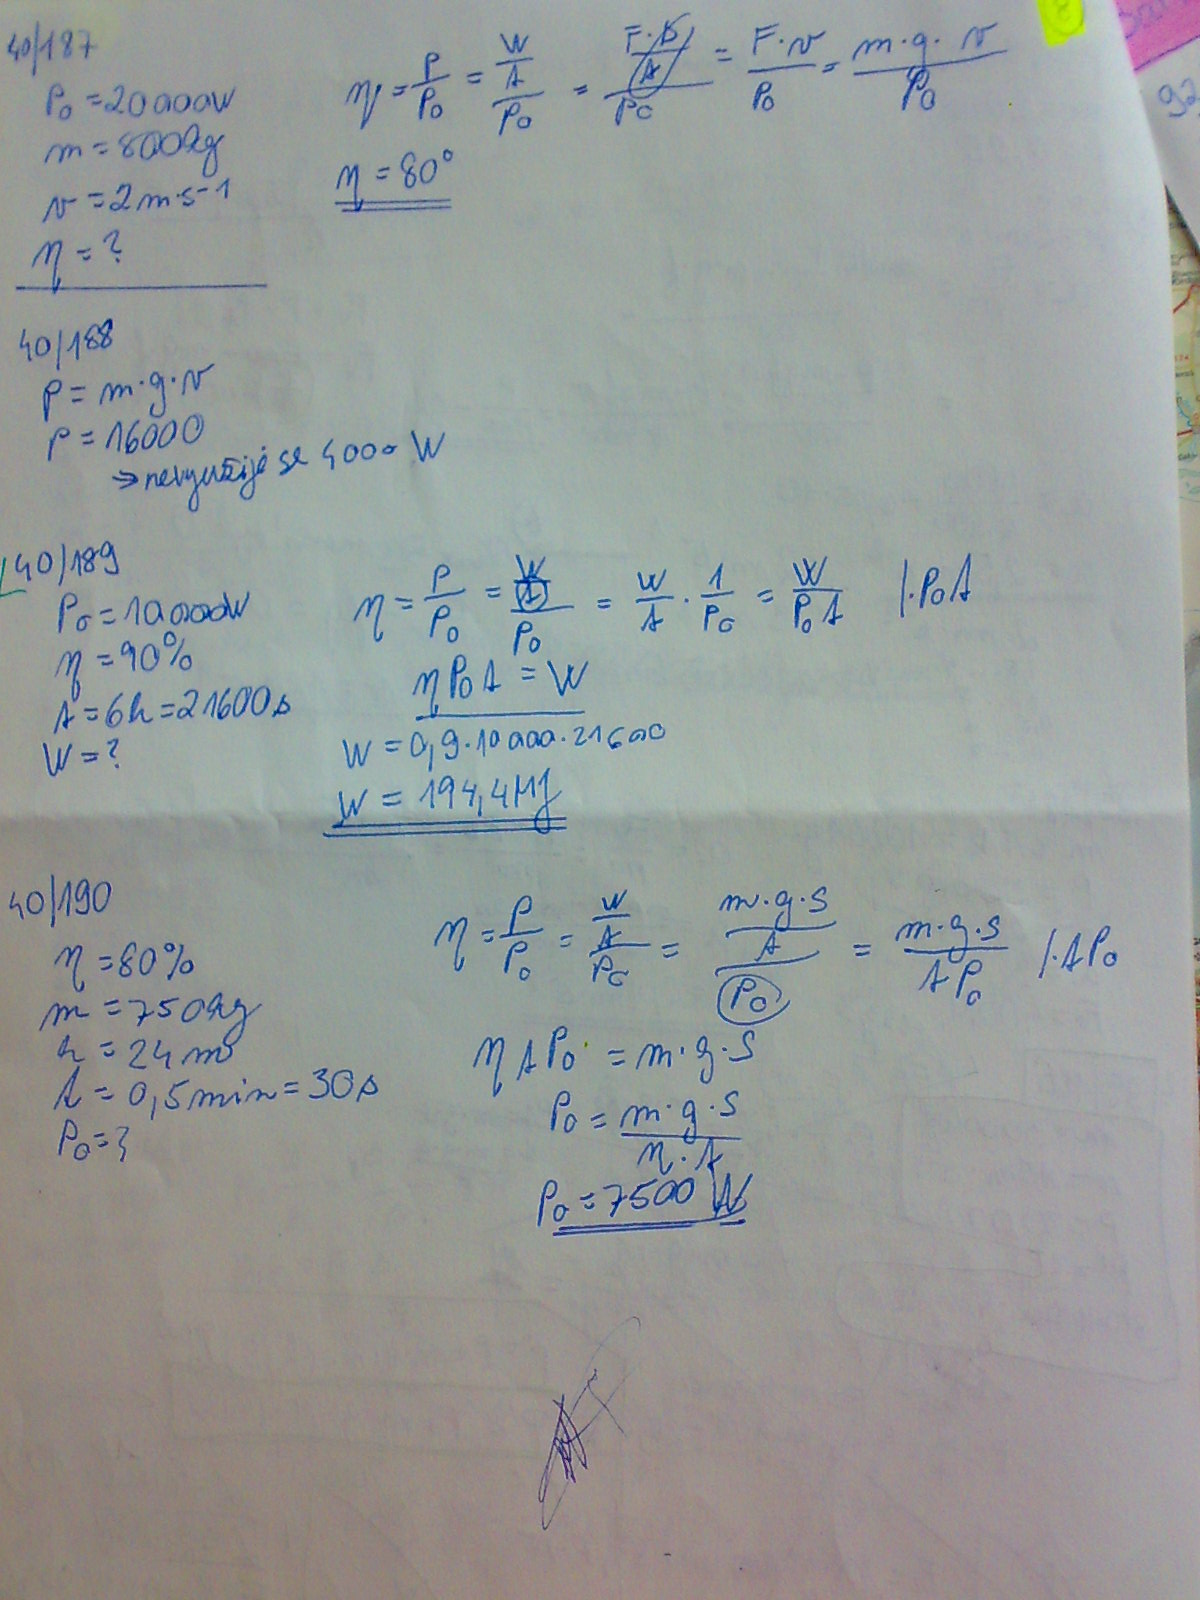 40/187
P₀ = 20 000W
m = 800kg
v = 2m·s-1
η = ?
η = P/P₀ = (W/t)/P₀ = (F·s/t)/P₀ = F·v/P₀ = m·g·v/P₀
η = 80°
40/188
P = m·g·v
P = 16000
→ nevyužije se 4000 W
40/189
P₀ = 10 000W
η = 90%
t = 6h = 21600s
W = ?
η = P/P₀ = (W/t)/P₀ = W/t · 1/P₀ = W/P₀t /·P₀t
ηP₀t = W
W = 0,9·10 000·21600
W = 194,4MJ
40/190
η = 80%
m = 750kg
h = 24m
t = 0,5min = 30s
P₀ = ?
η = P/P₀ = (W/t)/P₀ = (m·g·s/t)/P₀ = m·g·s/tP₀ /·tP₀
ηtP₀ = m·g·s
P₀ = m·g·s/η·t
P₀ = 7500 W